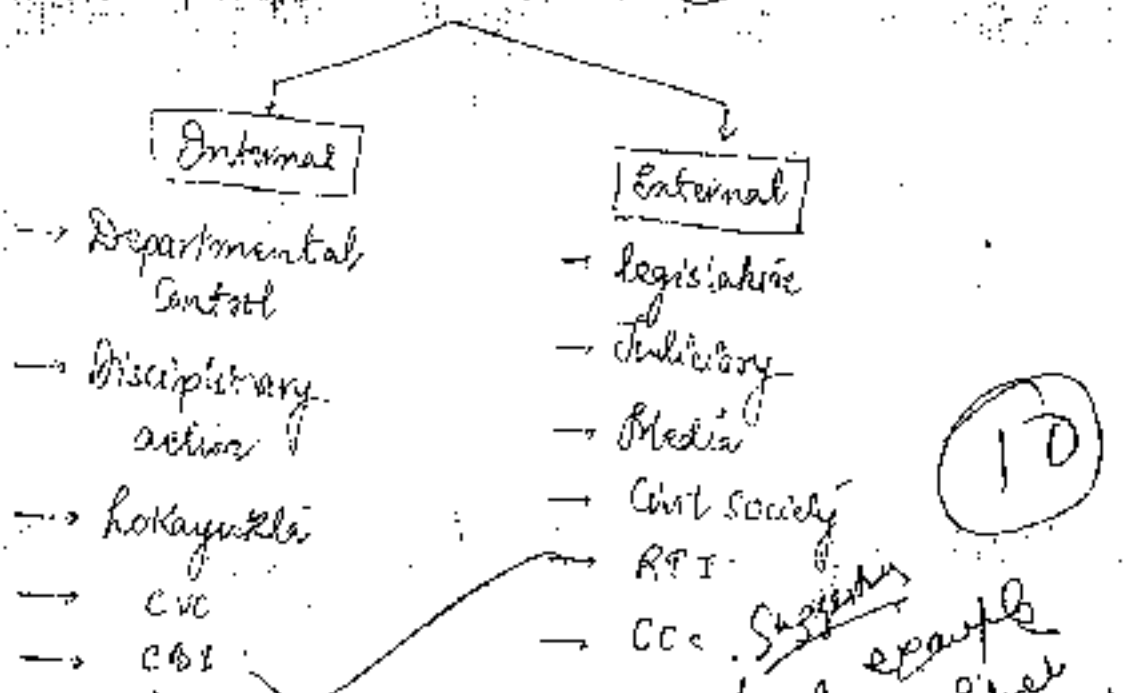 Internal
→ Departmental
Control
→ Disciplinary
action
→ Lokayukta
→ CVC
→ CBI
External
→ legislative
→ Judiciary
→ Media
→ Civil society
→ RTI
→
10
example